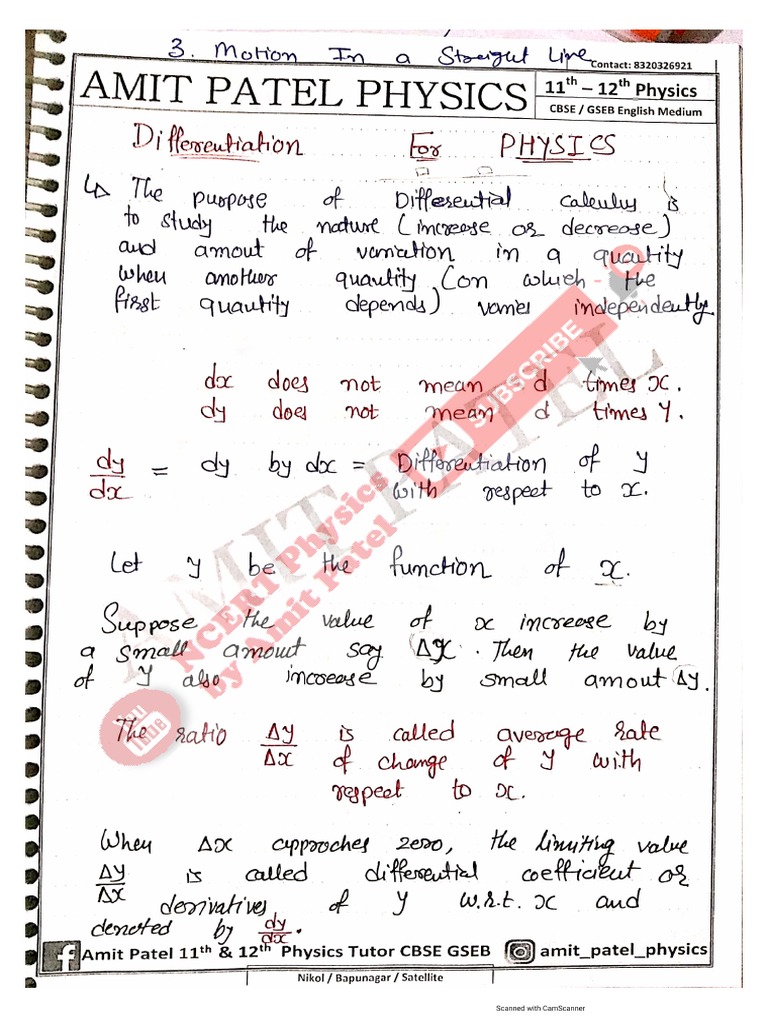 3. Motion In a Straight Line
Contact: 8320326921
AMIT PATEL PHYSICS
11th – 12th Physics
CBSE / GSEB English Medium
Differentiation For PHYSICS
↳ The purpose of Differential calculus is
to study the nature (increase or decrease)
and amout of variation in a quantity
when another quantity (on which the
first quantity depends) varies independently.
dx does not mean d times x.
dy does not mean d times y.
dy/dx = dy by dx = Differentiation of y
with respect to x.
Let y be the function of x.
Suppose the value of x increase by
a small amout say Δx. Then the value
of y also increase by small amout Δy.
The ratio Δy/Δx is called average rate
of change of y with
respect to x.
When Δx approches zero, the limiting value
Δy/Δx is called differential coefficient or
derivatives of y w.r.t. x and
denoted by dy/dx.
AMIT PATEL
SUBSCRIBE
NCERT Physics
by Amit Patel
You
Tube
Amit Patel 11th & 12th Physics Tutor CBSE GSEB
amit_patel_physics
Nikol / Bapunagar / Satellite
Scanned with CamScanner